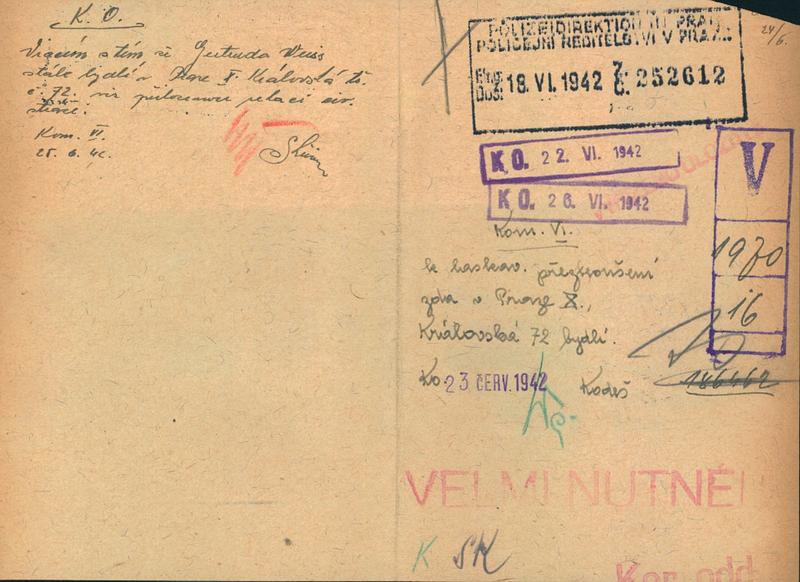 K. O.
Vracím s tím že Gertruda Weiss
stále bydlí v Praze X. Královská tř.
č. 72. viz
Kom. VI.
25. 6. 42.
24/6.
POLIZEIDIREKTION IN PRAG
POLICEJNÍ ŘEDITELSTVÍ V PRAZE
Eing.
Došl.
18. VI. 1942
Z.
Č.
252612
K.O. 22. VI. 1942
K.O. 26. VI. 1942
V
1970
16
Kom. VI.
k laskav. přezkoušení
zda v Praze X.,
Královská 72 bydlí.
Ko. 23 ČERV. 1942 Kodeš
186462
VELMI NUTNÉ!
K SK
Kor. odd.